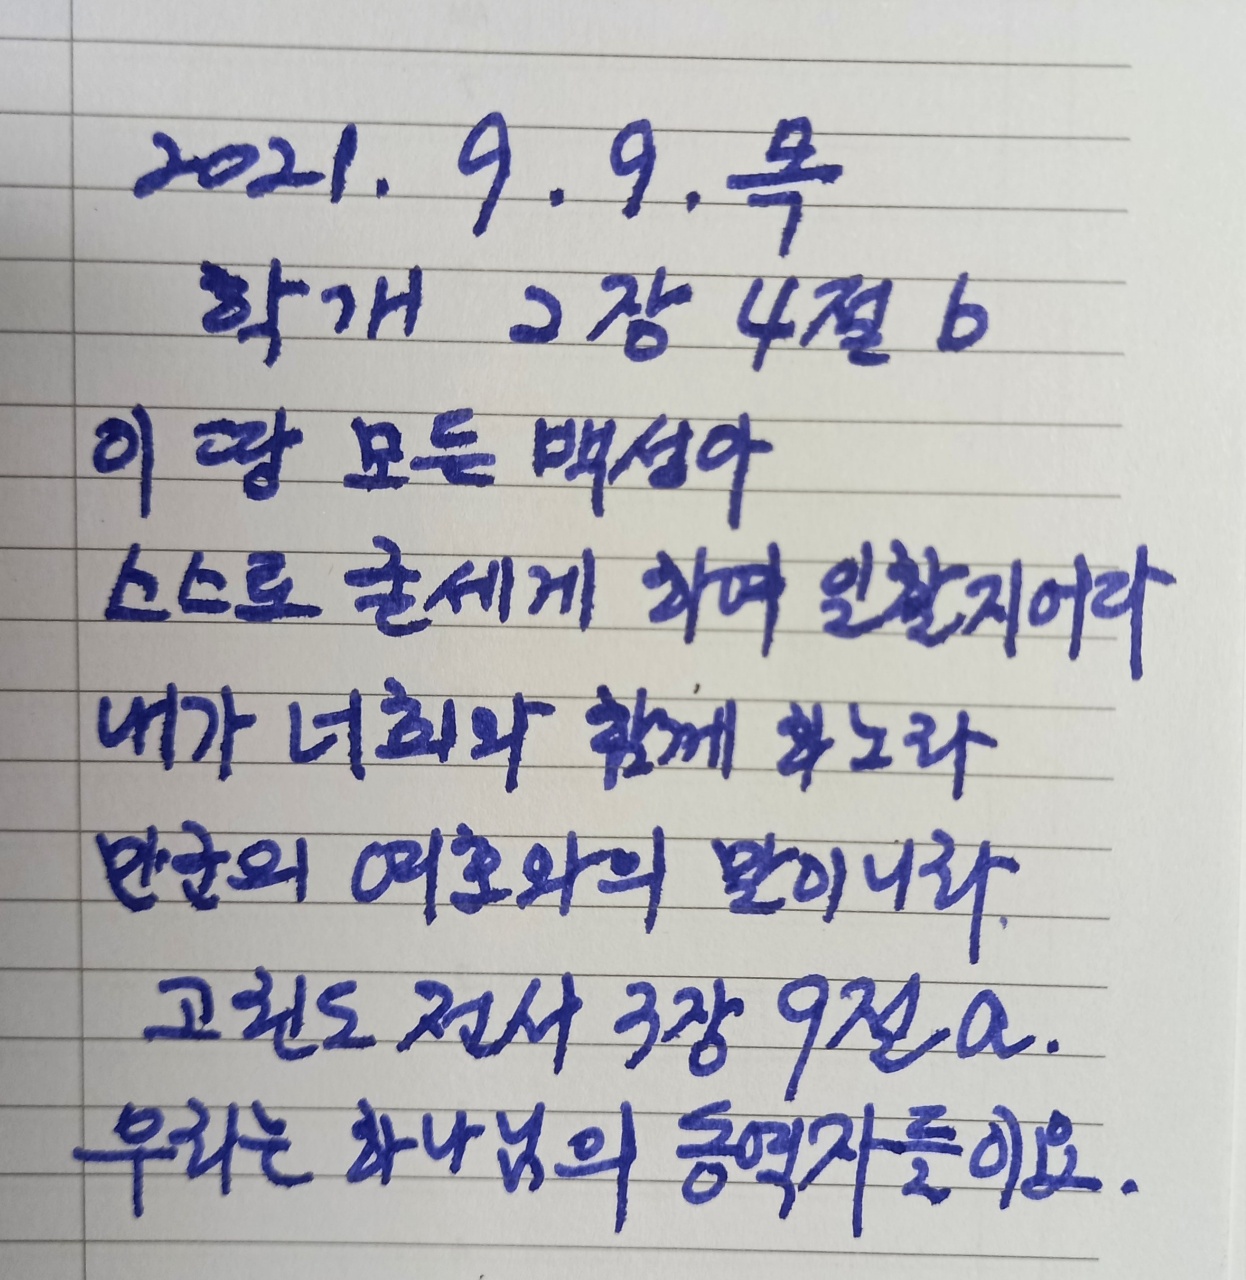 2021. 9. 9. 목
학개 2장 4절 b
이 땅 모든 백성아
스스로 굳세게 하여 일할지어라
내가 너희와 함께 하노라
만군의 여호와의 말이니라.
고린도 전서 3장 9절 a.
우리는 하나님의 동역자들이요.